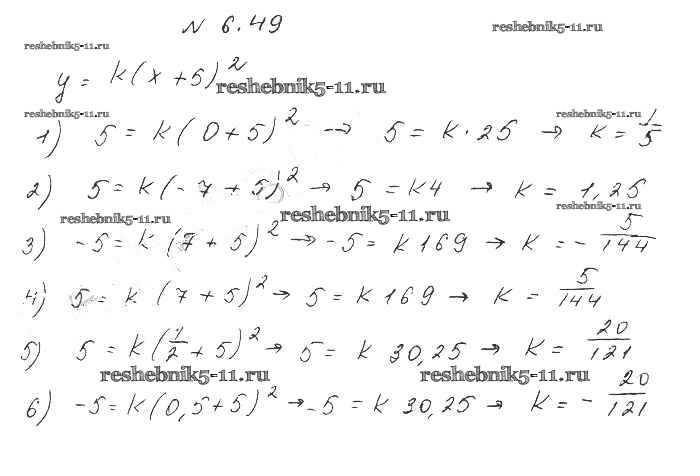 N 6.49
reshebnik5-11.ru
reshebnik5-11.ru
y = k(x+5)^2
reshebnik5-11.ru
reshebnik5-11.ru
reshebnik5-11.ru
1) 5 = k(0+5)^2 → 5 = k·25 → k = 1/5
2) 5 = k(-7+5)^2 → 5 = k4 → k = 1,25
reshebnik5-11.ru
reshebnik5-11.ru
reshebnik5-11.ru
3) -5 = k(7+5)^2 → -5 = k169 → k = -5/144
4) 5 = k(7+5)^2 → 5 = k169 → k = 5/144
5) 5 = k(1/2+5)^2 → 5 = k 30,25 → k = 20/121
reshebnik5-11.ru
reshebnik5-11.ru
6) -5 = k(0,5+5)^2 → -5 = k 30,25 → k = -20/121